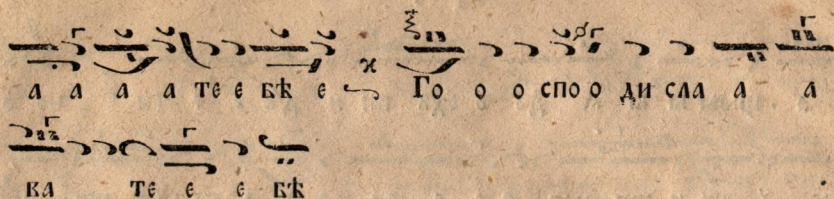 а а а а те е бѣ е Го о о спо о ди сла а а
ва те е е бѣ